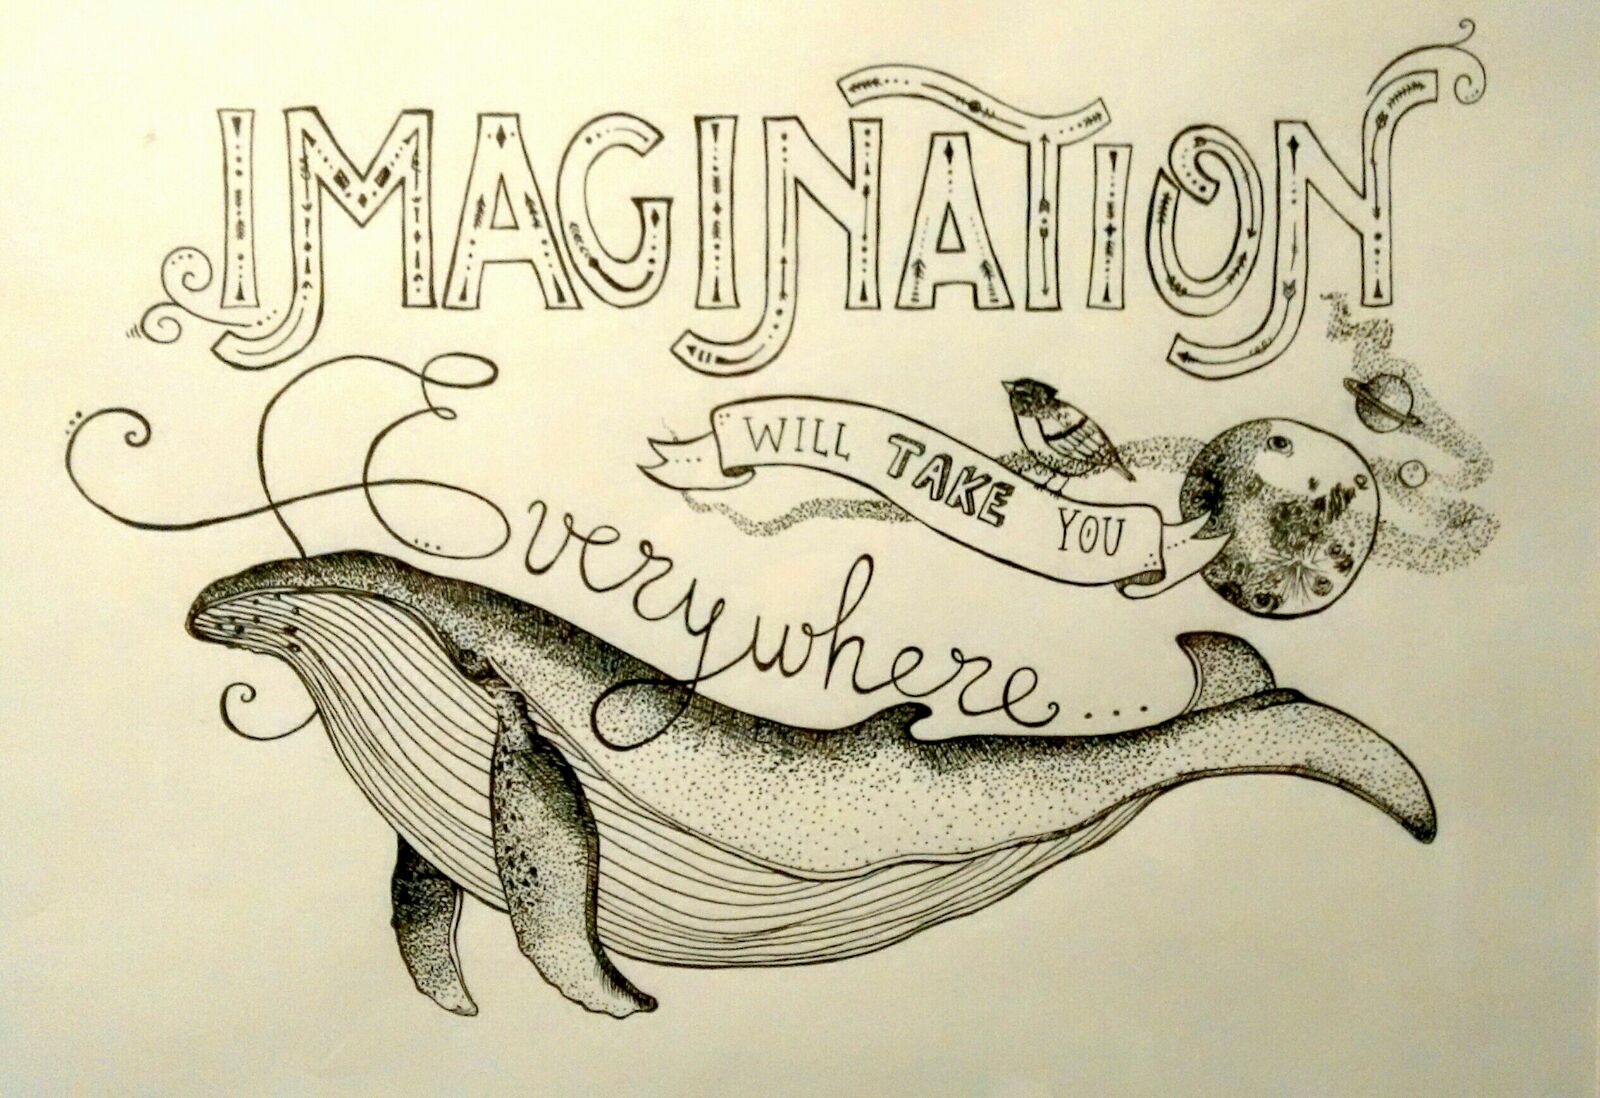 IMAGINATION
WILL TAKE YOU
Everywhere...